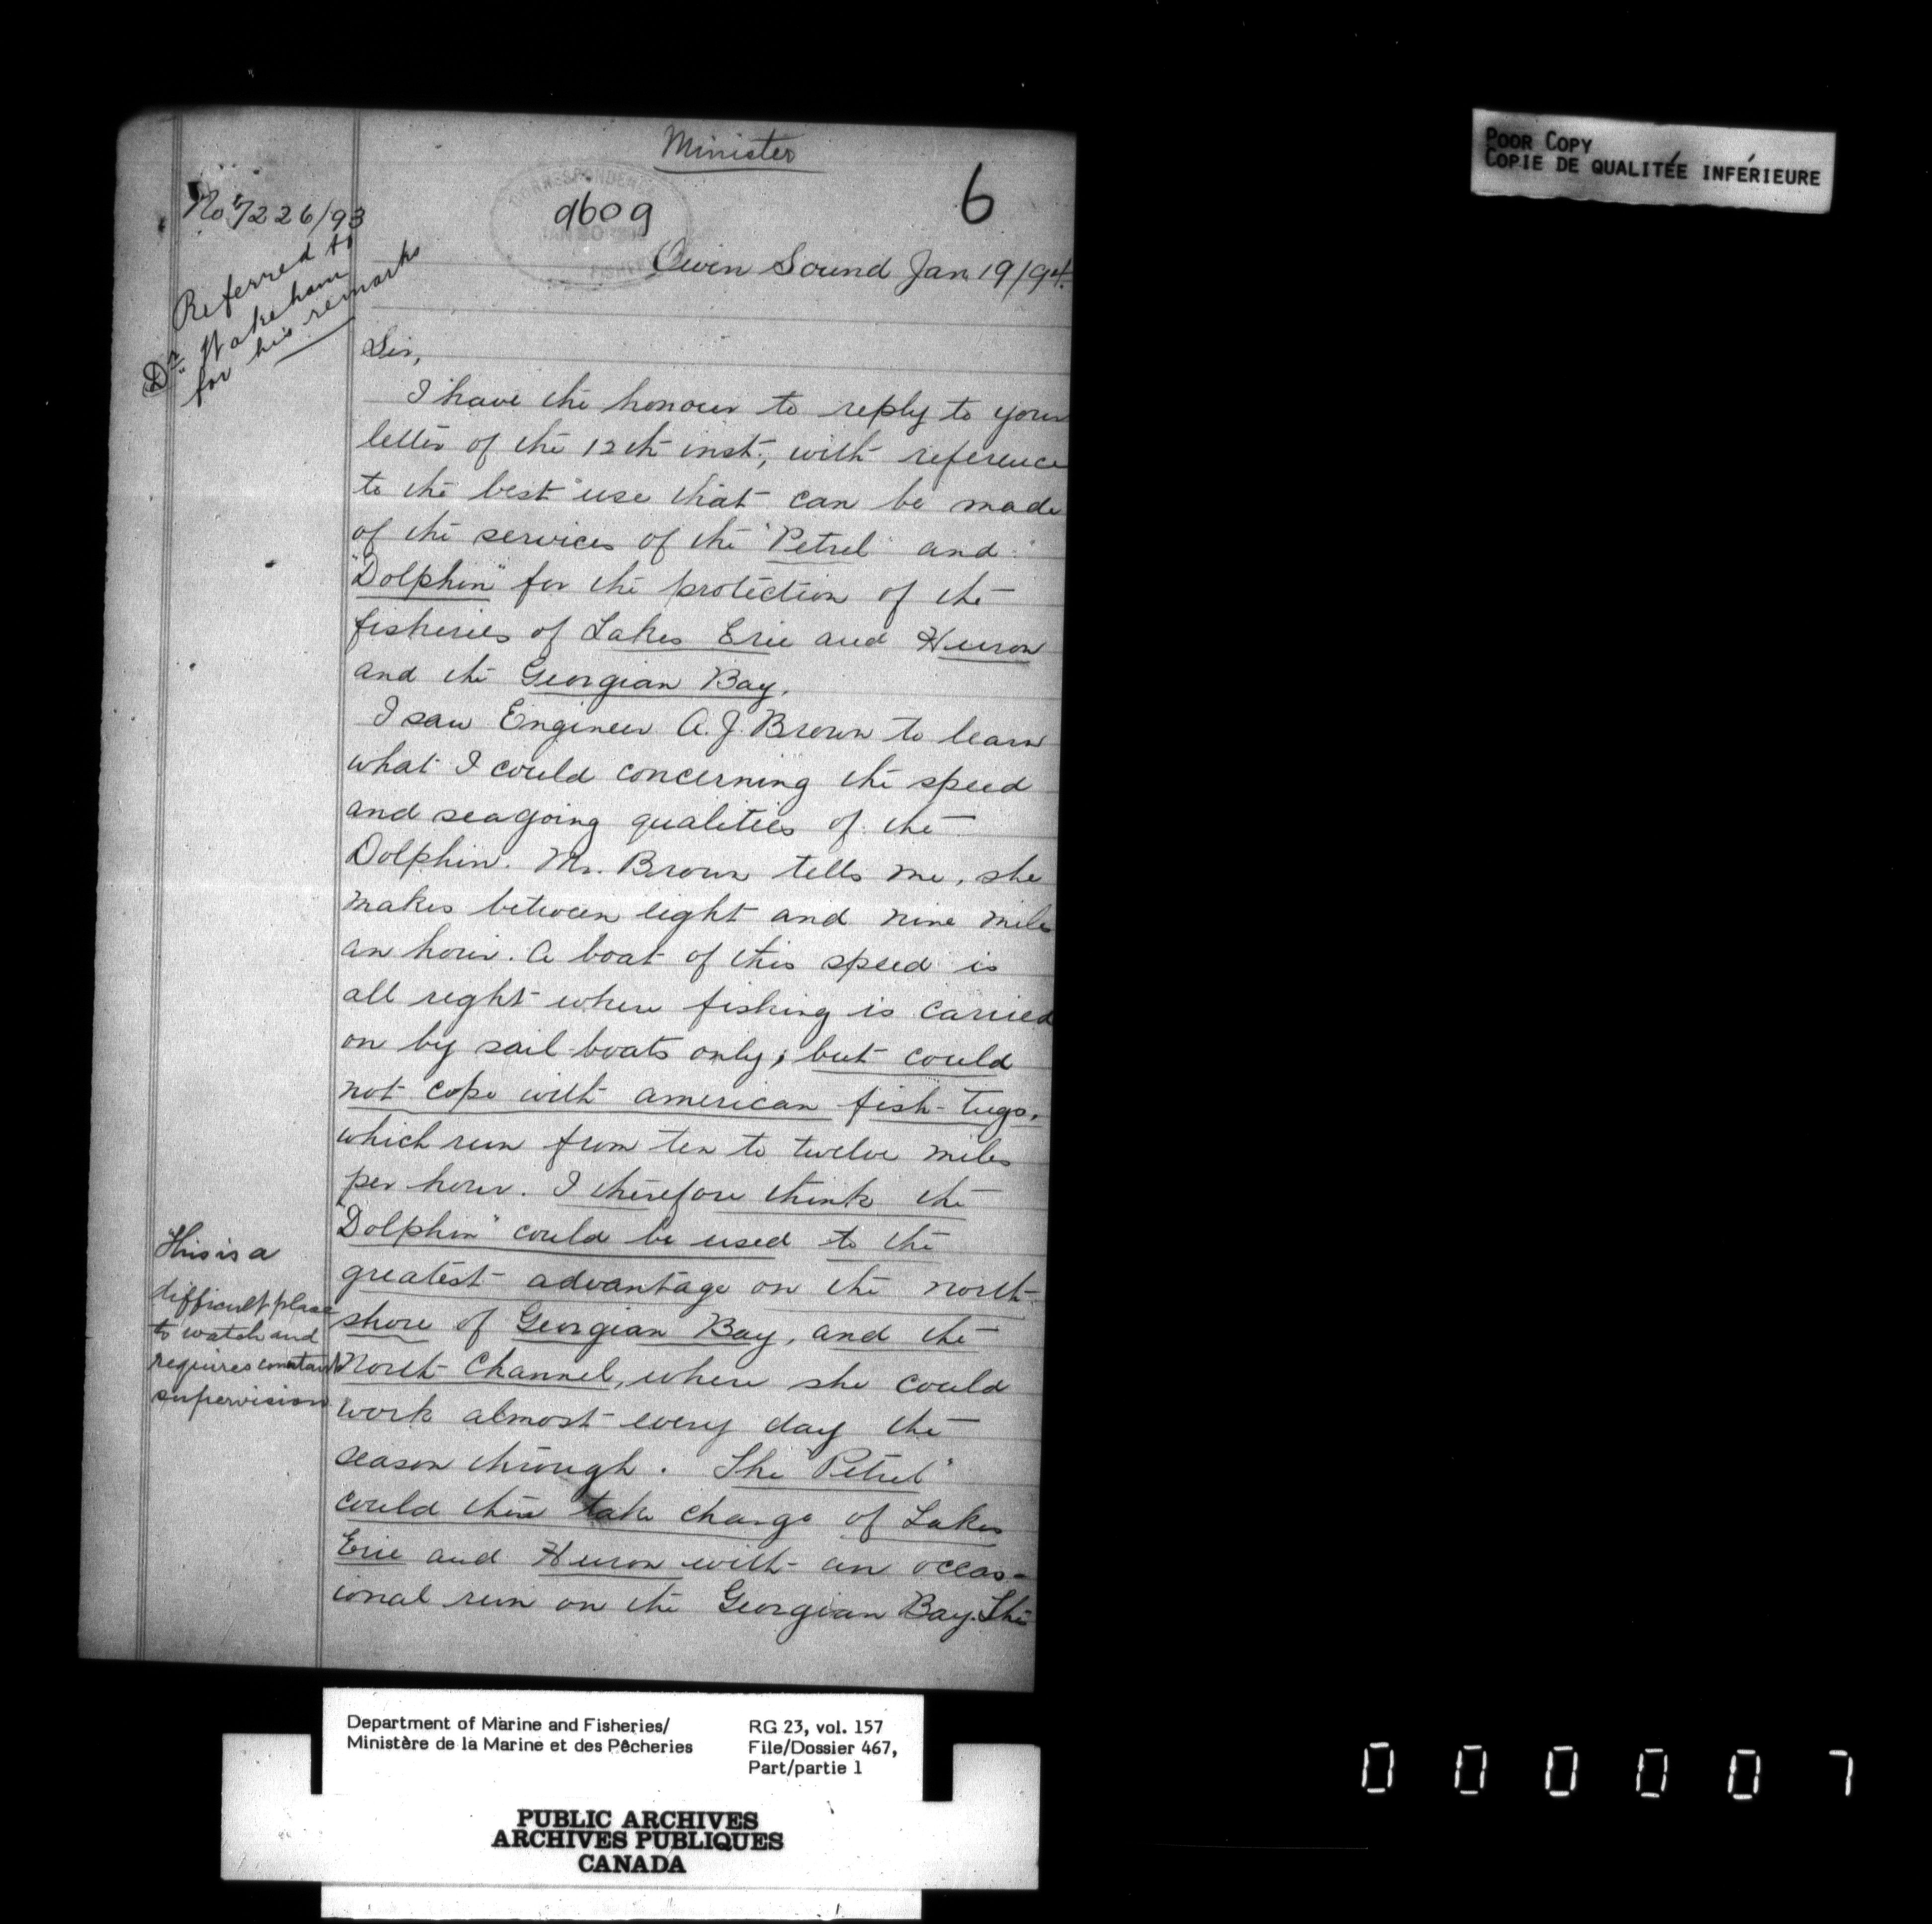 Minister
6
No 7226/93
9609
CORRESPONDENCE
JAN 20
FISHERIES
Owen Sound Jan 19/94.
Referred to
Dr Wakeham
for his remarks
Sir,
I have the honour to reply to your
letter of the 12th inst., with reference
to the best use that can be made
of the services of the "Petrel" and
"Dolphin" for the protection of the
fisheries of Lakes Erie and Huron
and the Georgian Bay.
I saw Engineer A. J. Brown to learn
what I could concerning the speed
and seagoing qualities of the
Dolphin. Mr. Brown tells me, she
makes between eight and nine miles
an hour. A boat of this speed is
all right where fishing is carried
on by sail-boats only; but could
not cope with american fish-tugs,
which run from ten to twelve miles
per hour. I therefore think the
"Dolphin" could be used to the
greatest advantage on the north
shore of Georgian Bay, and the
North Channel, where she could
work almost every day the
season through. The "Petrel"
could then take charge of Lakes
Erie and Huron with an occas-
ional run on the Georgian Bay. The
This is a
difficult place
to watch and
requires constant
supervision
POOR COPY
COPIE DE QUALITÉE INFÉRIEURE
Department of Marine and Fisheries/
Ministère de la Marine et des Pêcheries
RG 23, vol. 157
File/Dossier 467,
Part/partie 1
PUBLIC ARCHIVES
ARCHIVES PUBLIQUES
CANADA
000007